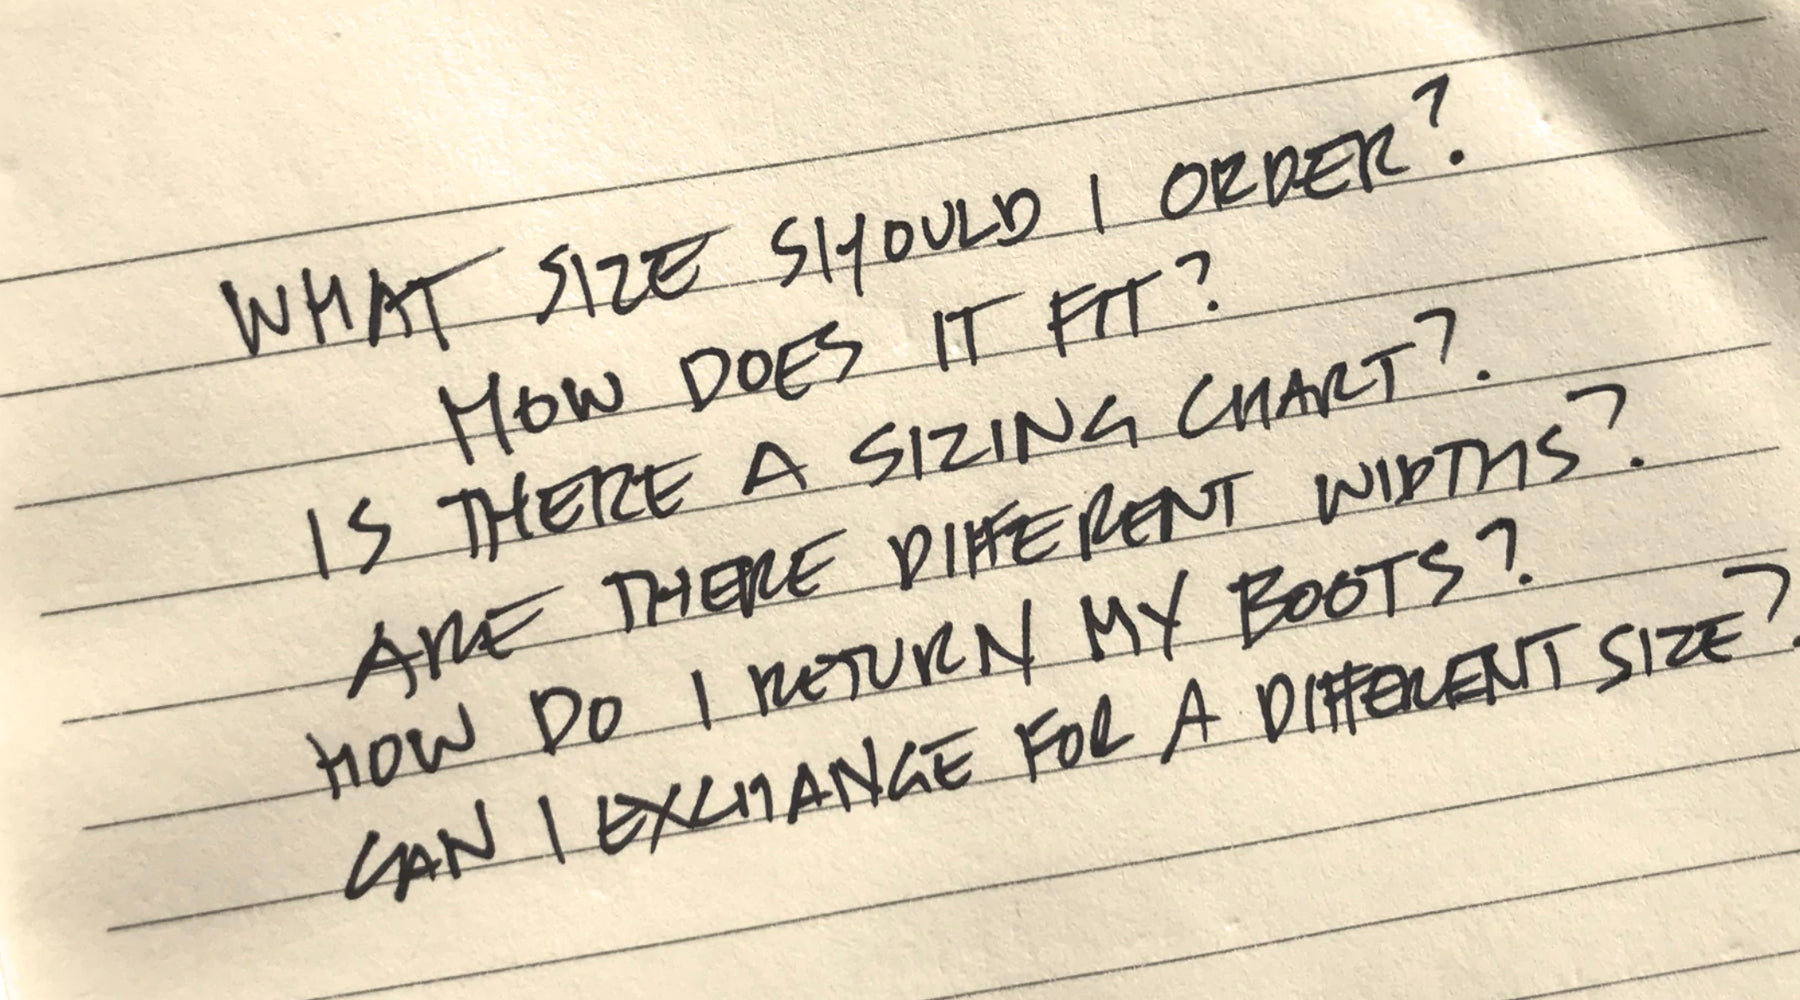 WHAT SIZE SHOULD I ORDER?
HOW DOES IT FIT?
IS THERE A SIZING CHART?
ARE THERE DIFFERENT WIDTHS?
HOW DO I RETURN MY BOOTS?
CAN I EXCHANGE FOR A DIFFERENT SIZE?